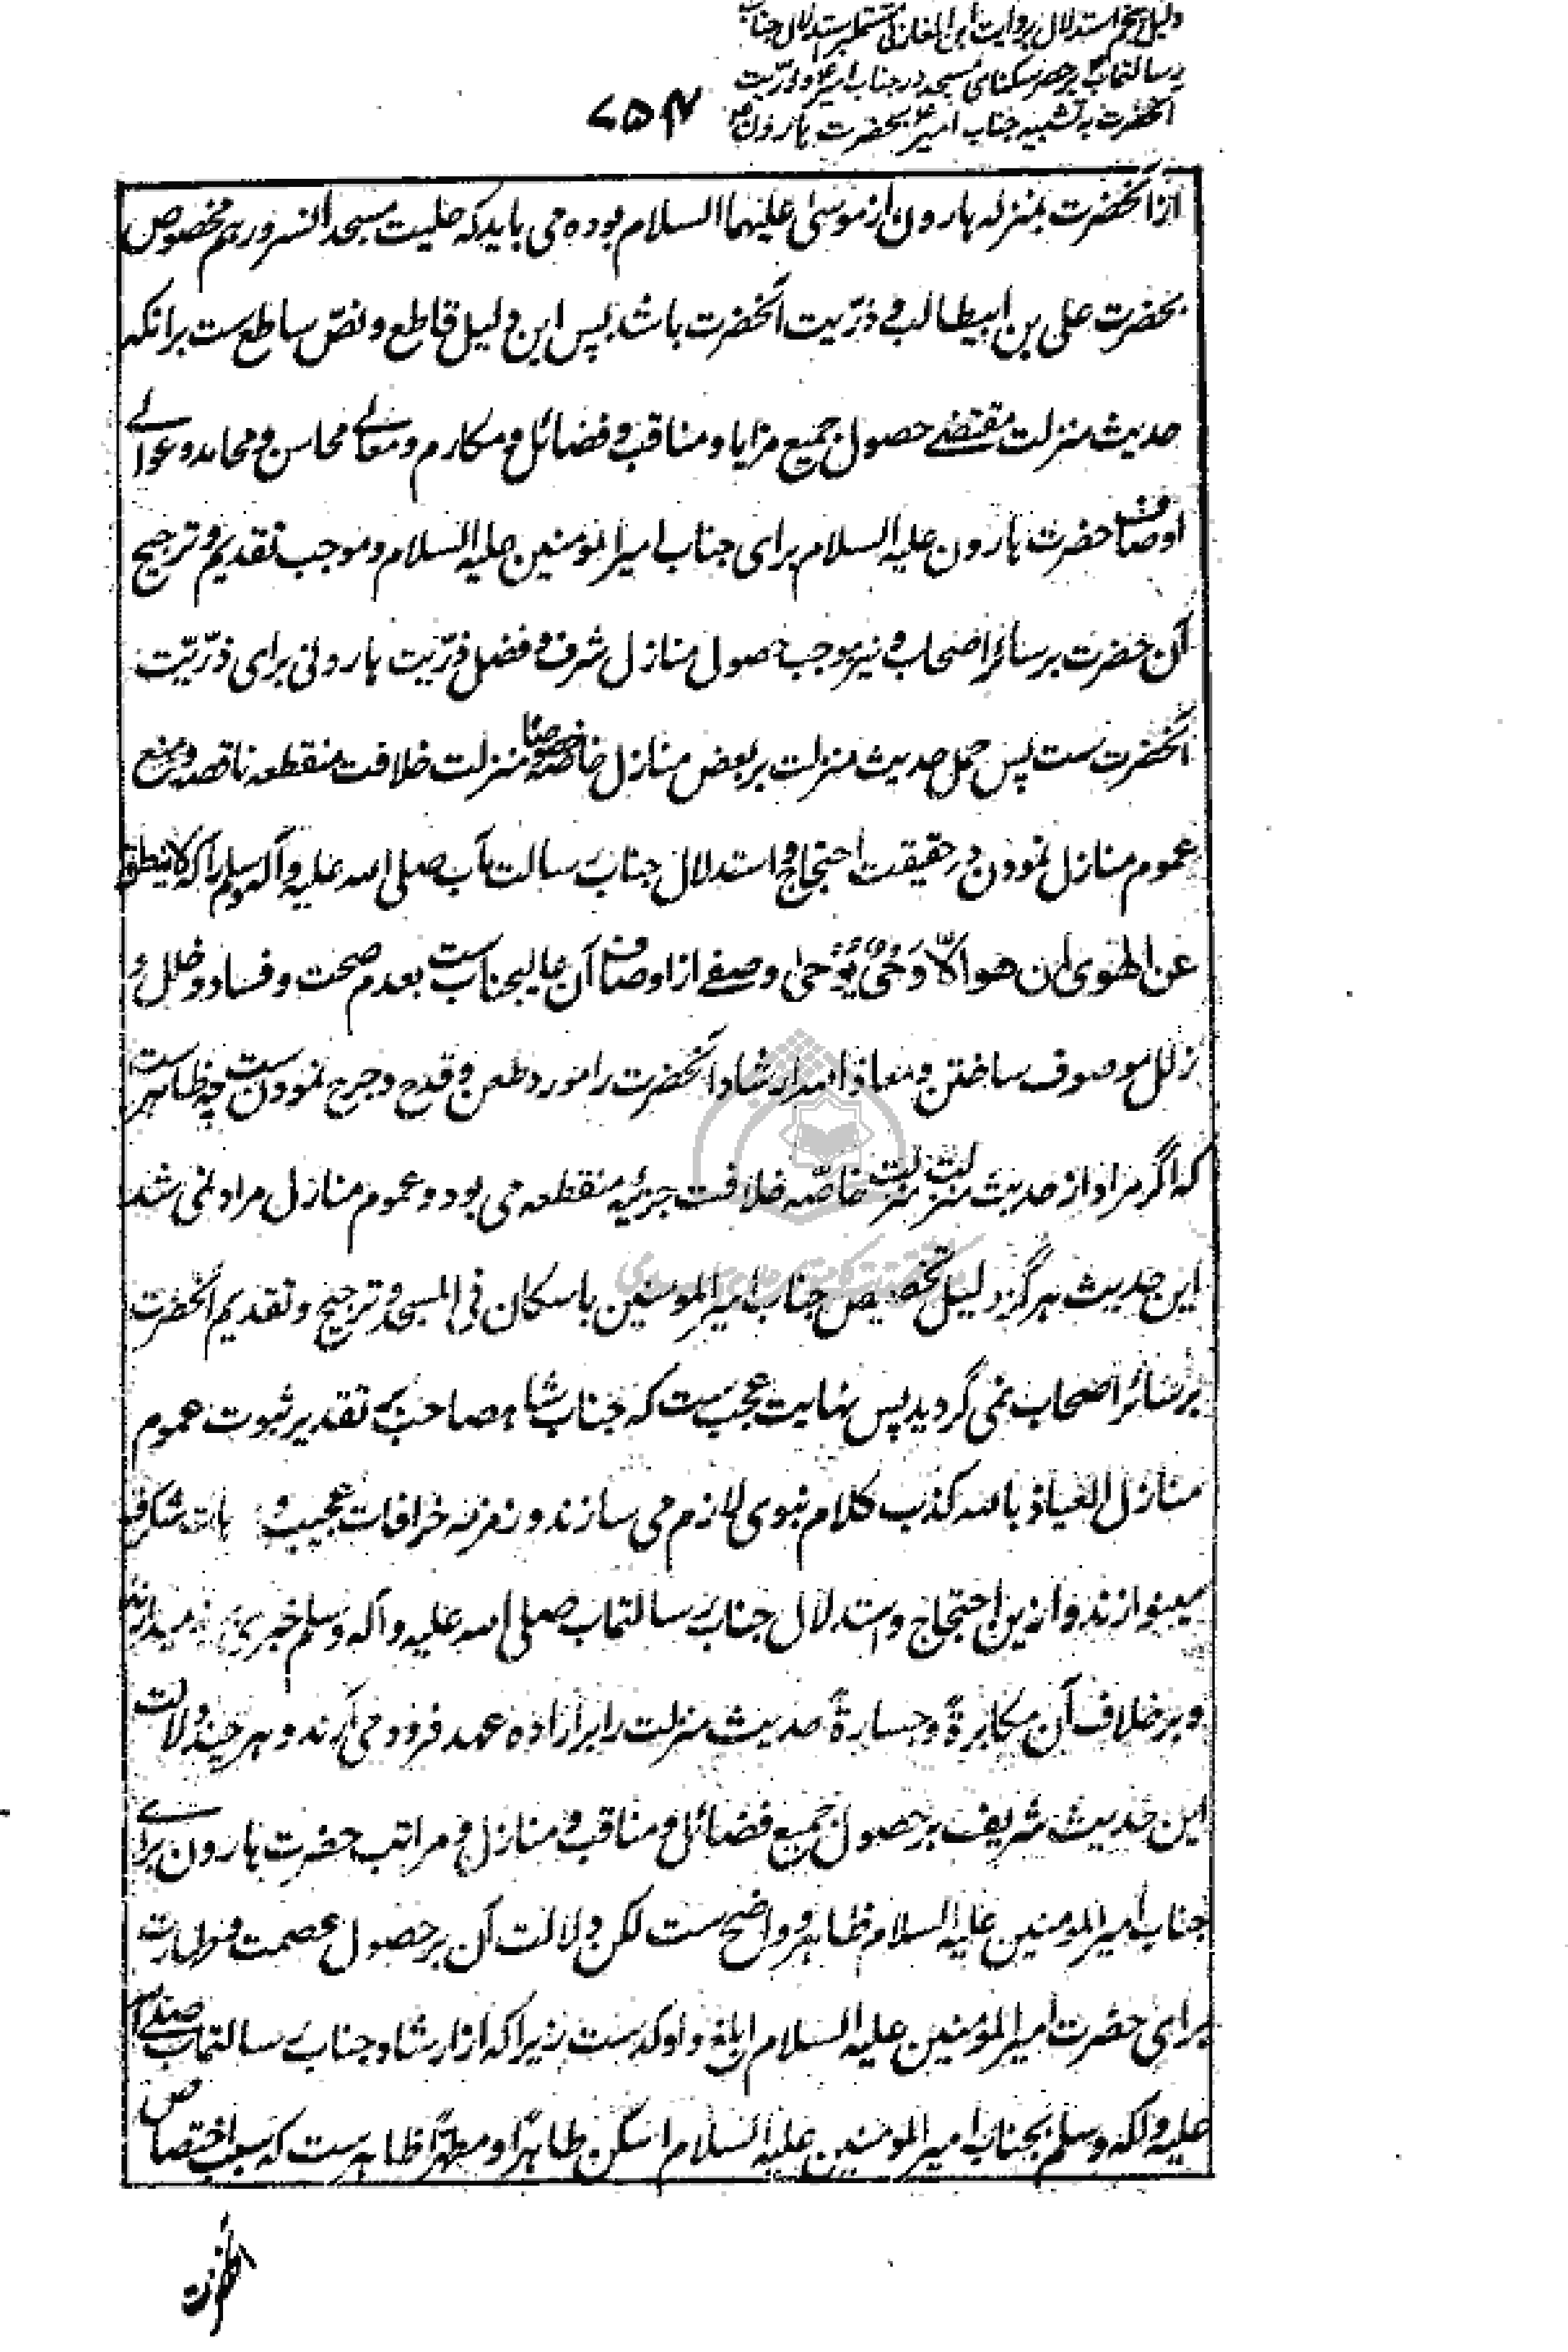 دلیل پنجم استدلال بروایت ابن المغازلی مشتمل بر استدلال جناب
رسالتمآب بر حصر سکنای مسجد در جناب امیر ع و ذرّیت
آنحضرت به تشبیه جناب امیر ع بحضرت هارون ع
۷۵۴
از آنحضرت بمنزله هارون از موسی علیهما السلام بوده می باید که حلیت مسجد آنسرور هم مخصوص
بحضرت علی بن ابیطالب و ذرّیت آنحضرت باشد پس این دلیل قاطع و نصّ ساطع ست برانکه
حدیث منزلت مقتضے حصول جمیع مزایا و مناقب و فضائل و مکارم و معالے محاسن و محامد و عوالے
اوصاف حضرت هارون علیه السلام برای جناب امیر المؤمنین علیه السلام و موجب تقدیم و ترجیح
آن حضرت بر سائر اصحاب و نیز موجب حصول منازل شرف و فضل ذرّیت هارونی برای ذرّیّت
آنحضرت ست پس حمل حدیث منزلت بر بعض منازل خاصّه خصوصا منزلت خلافت منقطعه ناقصه و منع
عموم منازل نمودن در حقیقت احتجاج و استدلال جناب رسالت مآب صلی الله علیه و آله وسلم را که لا ینطق
عن الهوی ان هو الّا وَحْیٌ یُوْحیٰ وصفے از اوصاف آن عالیجناب ست بعدم صحت و فساد و خلل و
زلل موصوف ساختن و معاذ الله ارشاد آنحضرت را مورد طعن و قدح و جرح نمودن ست چه ظاهر ست
که اگر مراد از حدیث منزلت منزلت خاصّه خلافت جزئیه منقطعه می بود و عموم منازل مراد نمی شد
این حدیث هرگز دلیل تخصیص جناب امیر المومنین باسکان فی المسجد و ترجیح و تقدیم آنحضرت
بر سائر اصحاب نمی گردید پس نهایت عجب ست که جناب شاهصاحب بر تقدیر ثبوت عموم
منازل العیاذ بالله کذب کلام نبوی لازم می سازند و زمزمه خرافات عجیب و شگرف
مینوازند و ازین احتجاج و استدلال جناب رسالتمآب صلی الله علیه و آله وسلم خبری
و بر خلاف آن مکابرةً و جسارةً حدیث منزلت را بر اراده عهد فرود می آرند و هر چند دلالت
این حدیث شریف بر حصول جمیع فضائل و مناقب و منازل و مراتب حضرت هارون براے
جناب امیر المومنین علیه السلام ظاهر و واضح ست لکن دلالت آن بر حصول عصمت و طهارت
برای حضرت امیر المومنین علیه السلام ابلغ و اوکد ست زیرا که از ارشاد جناب رسالتمآب صلی الله
علیه و آله وسلم بجناب امیر المومنین علیه السلام اسکن طاهرًا و مطهّرًا ظاهر ست که سبب اختصاص
آنحضرت